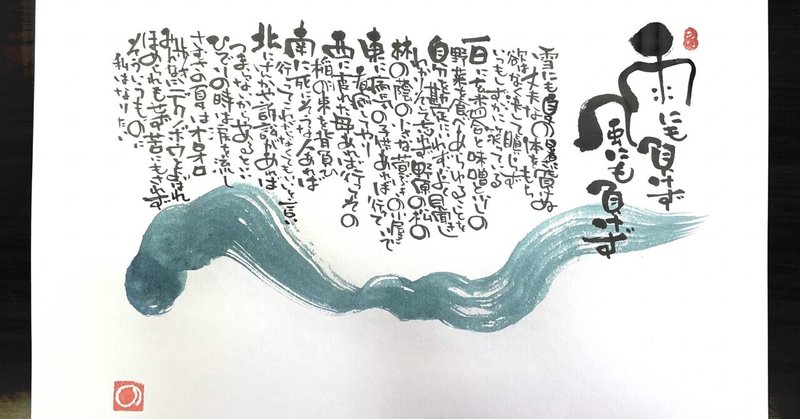 雨にも負けず
風にも負けず
雪にも夏の暑さに負けぬ
丈夫な体をもち
欲はなく決して瞋らず
いつもしずかに笑っている
一日に玄米四合と味噌と少しの
野菜を食べあらゆることを
自分を勘定に入れずよく見聞きし
わかりそして忘れず野原の松の
林の蔭の小さな萱ぶきの小屋にいて
東に病気の子供あれば行って
看病してやり
西に疲れた母あれば行ってその
稲の束を背負い
南に死にそうな人あれば
行ってこわがらなくてもいいと言い
北にけんかや訴訟があれば
つまらないからやめろといい
ひでりの時は涙を流し
さむさの夏はオロオロ
歩き
みんなにデクノボウとよばれ
ほめられもせず苦にもされず
そういうものに
私はなりたい